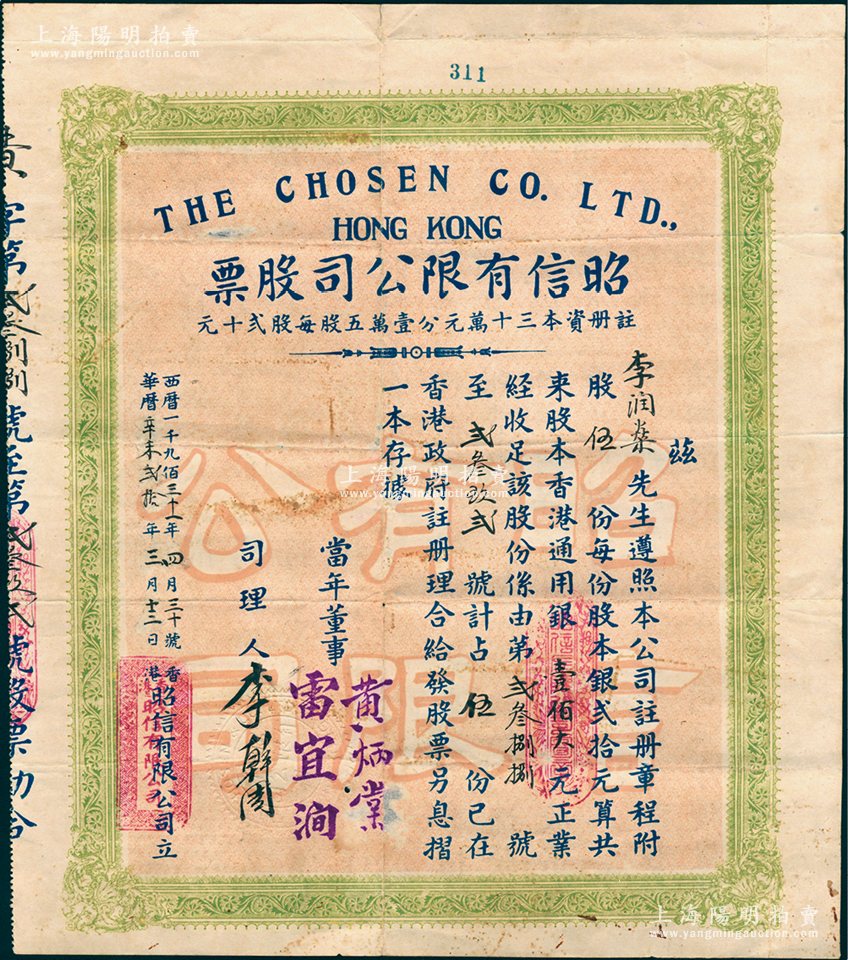 上海陽明拍賣
www.yangmingauction.com
311
THE CHOSEN CO. LTD.,
HONG KONG
昭信有限公司股票
註册資本三十萬元分壹萬五股每股弍十元
茲
李润燊先生遵照本公司註册章程附
股伍份每份股本銀弍拾元算共
來股本香港通用銀壹佰大元正業
經收足該股份係由第弍叁捌捌號
至弍叁玖弍號計占伍份已在
香港政府註册理合給發股票另息摺
一本存據
當年董事
黄炳棠
雷宜洞
司理人
李幹周
西曆一千九佰三十一年四月三十號
華曆辛未弍拾年三月十三日
香港昭信有限公司立
字第弍叁捌捌號至第弍叁玖弍號股票勘合
昭信有限公司
上海陽明拍賣
www.yangmingauction.com
上海陽明拍賣
www.yangmingauction.com